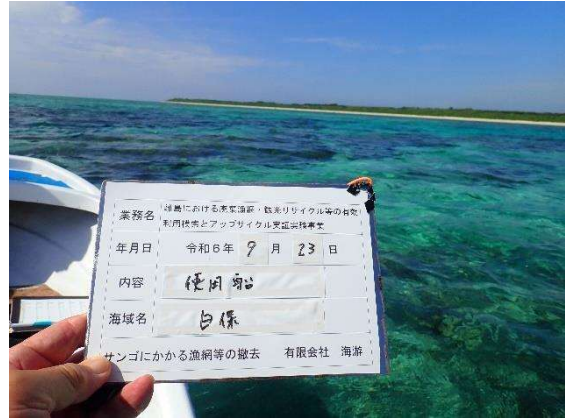 業務名 離島における廃棄漁網・観光リサイクル等の有効
利用模索とアップサイクル実証実務事業
年月日 令和6年 9月 23日
内容 使用船
海域名 白保
サンゴにかかる漁網等の撤去 有限会社 海游